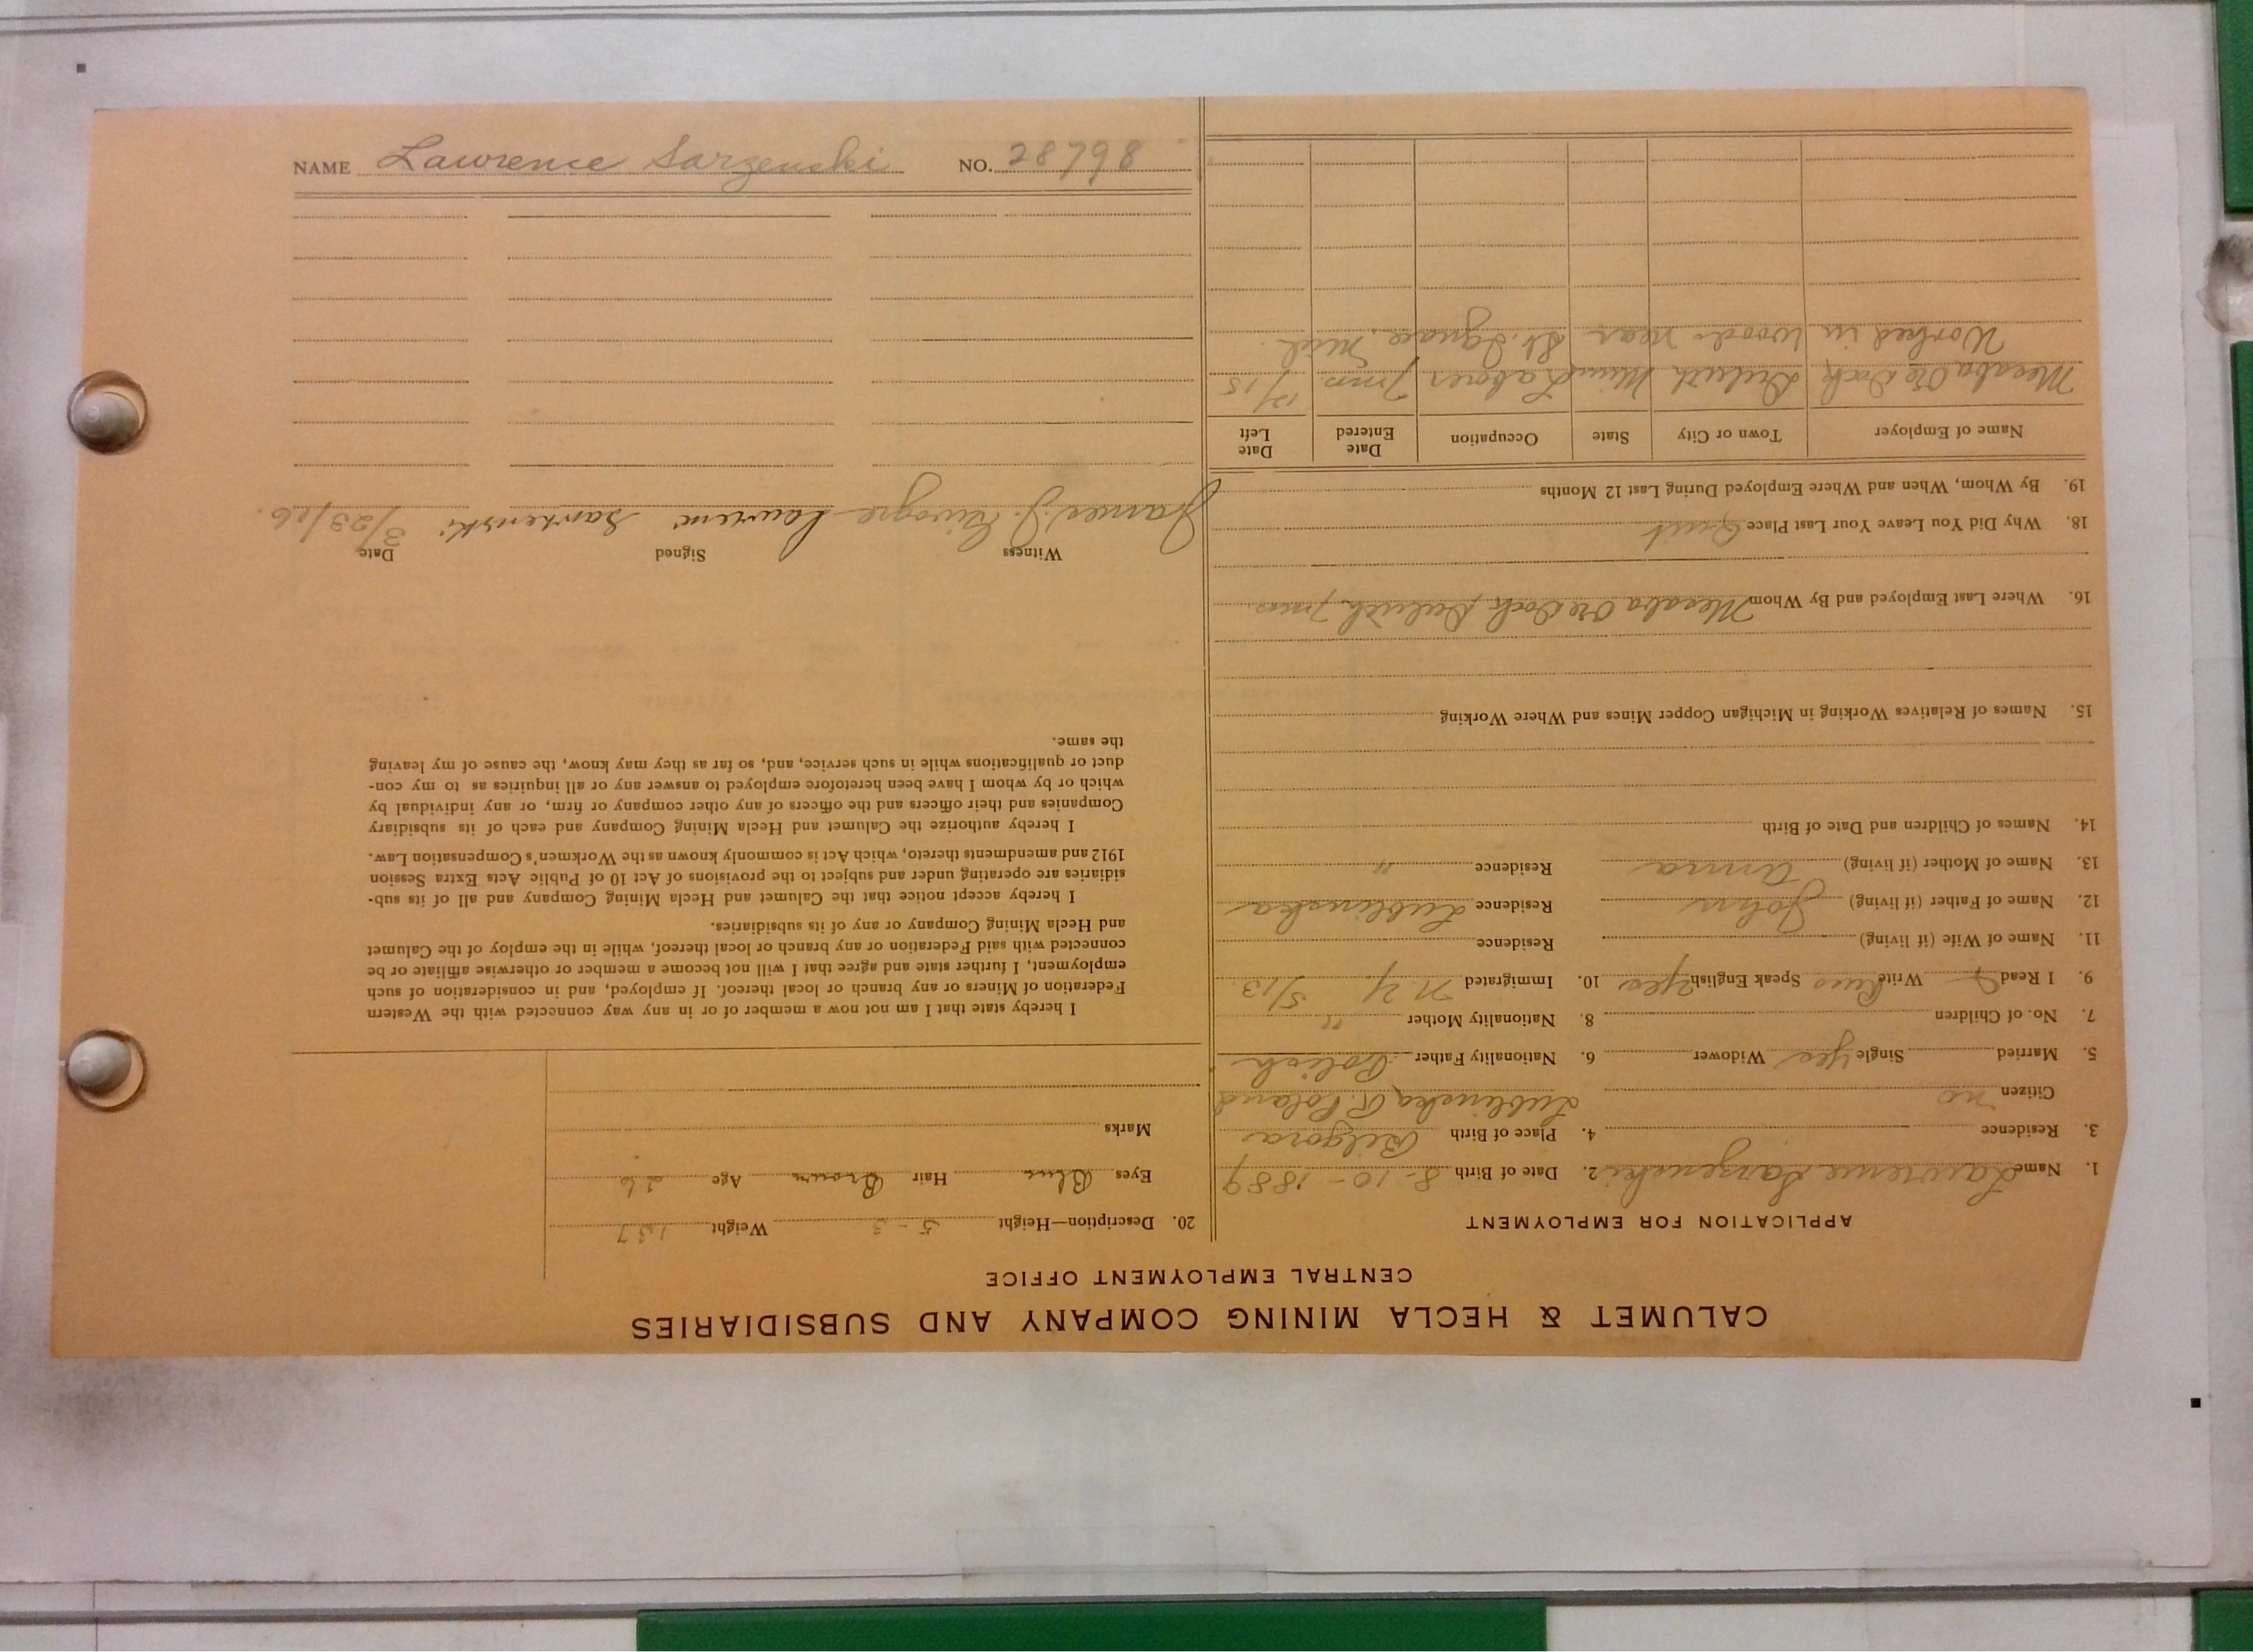 CALUMET & HECLA MINING COMPANY AND SUBSIDIARIES
CENTRAL EMPLOYMENT OFFICE
APPLICATION FOR EMPLOYMENT
1. Name Lawrence Sarzenski 2. Date of Birth 8-10-1889
3. Residence 4. Place of Birth Bilgora
Citizen no Lublinska R. Poland
5. Married Single yes Widower 6. Nationality Father Polish
7. No. of Children 8. Nationality Mother "
9. I Read Write Russ Speak English yes 10. Immigrated N.Y. 5/13
11. Name of Wife (if living) Residence
12. Name of Father (if living) John Residence Lublinska
13. Name of Mother (if living) Anna Residence "
14. Names of Children and Date of Birth
15. Names of Relatives Working in Michigan Copper Mines and Where Working
16. Where Last Employed and By Whom Mesaba Ore Dock, Duluth,
18. Why Did You Leave Your Last Place Quit
19. By Whom, When and Where Employed During Last 12 Months
Name of Employer Town or City State Occupation Date Entered Date Left
Mesaba Ore Dock Duluth Minn Laborer 7 mos. 12/15
Worked in woods near St. Ignace, Mich.
20. Description—Height 5-3 Weight 137
Eyes Blue Hair Brown Age 26
Marks
I hereby state that I am not now a member of or in any way connected with the Western
Federation of Miners or any branch or local thereof. If employed, and in consideration of such
employment, I further state and agree that I will not become a member or otherwise affiliate or be
connected with said Federation or any branch or local thereof, while in the employ of the Calumet
and Hecla Mining Company or any of its subsidiaries.
I hereby accept notice that the Calumet and Hecla Mining Company and all of its sub-
sidiaries are operating under and subject to the provisions of Act 10 of Public Acts Extra Session
1912 and amendments thereto, which Act is commonly known as the Workmen's Compensation Law.
I hereby authorize the Calumet and Hecla Mining Company and each of its subsidiary
Companies and their officers and the officers of any other company or firm, or any individual by
which or by whom I have been heretofore employed to answer any or all inquiries as to my con-
duct or qualifications while in such service, and, so far as they may know, the cause of my leaving
the same.
Witness Signed Date
James J. Sarzenski 3/23/16.
NAME Lawrence Sarzenski NO. 28798